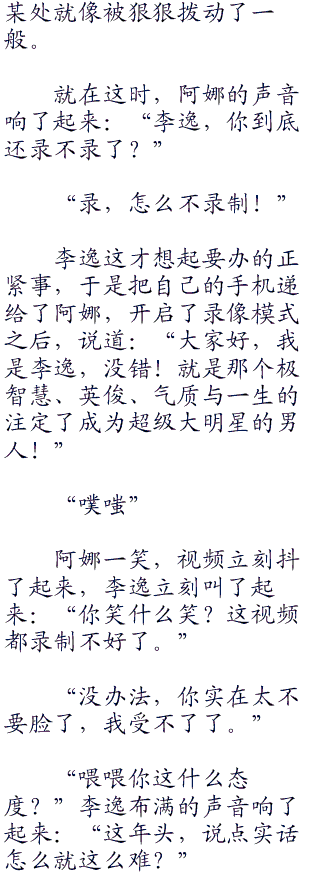 某处就像被狠狠拨动了一
般。
就在这时，阿娜的声音
响了起来：“李逸，你到底
还录不录了？”
“录，怎么不录制！”
李逸这才想起要办的正
紧事，于是把自己的手机递
给了阿娜，开启了录像模式
之后，说道：“大家好，我
是李逸，没错！就是那个极
智慧、英俊、气质与一生的
注定了成为超级大明星的男
人！”
“噗嗤”
阿娜一笑，视频立刻抖
了起来，李逸立刻叫了起
来：“你笑什么笑？这视频
都录制不好了。”
“没办法，你实在太不
要脸了，我受不了了。”
“喂喂你这什么态
度？”李逸布满的声音响了
起来：“这年头，说点实话
怎么就这么难？”